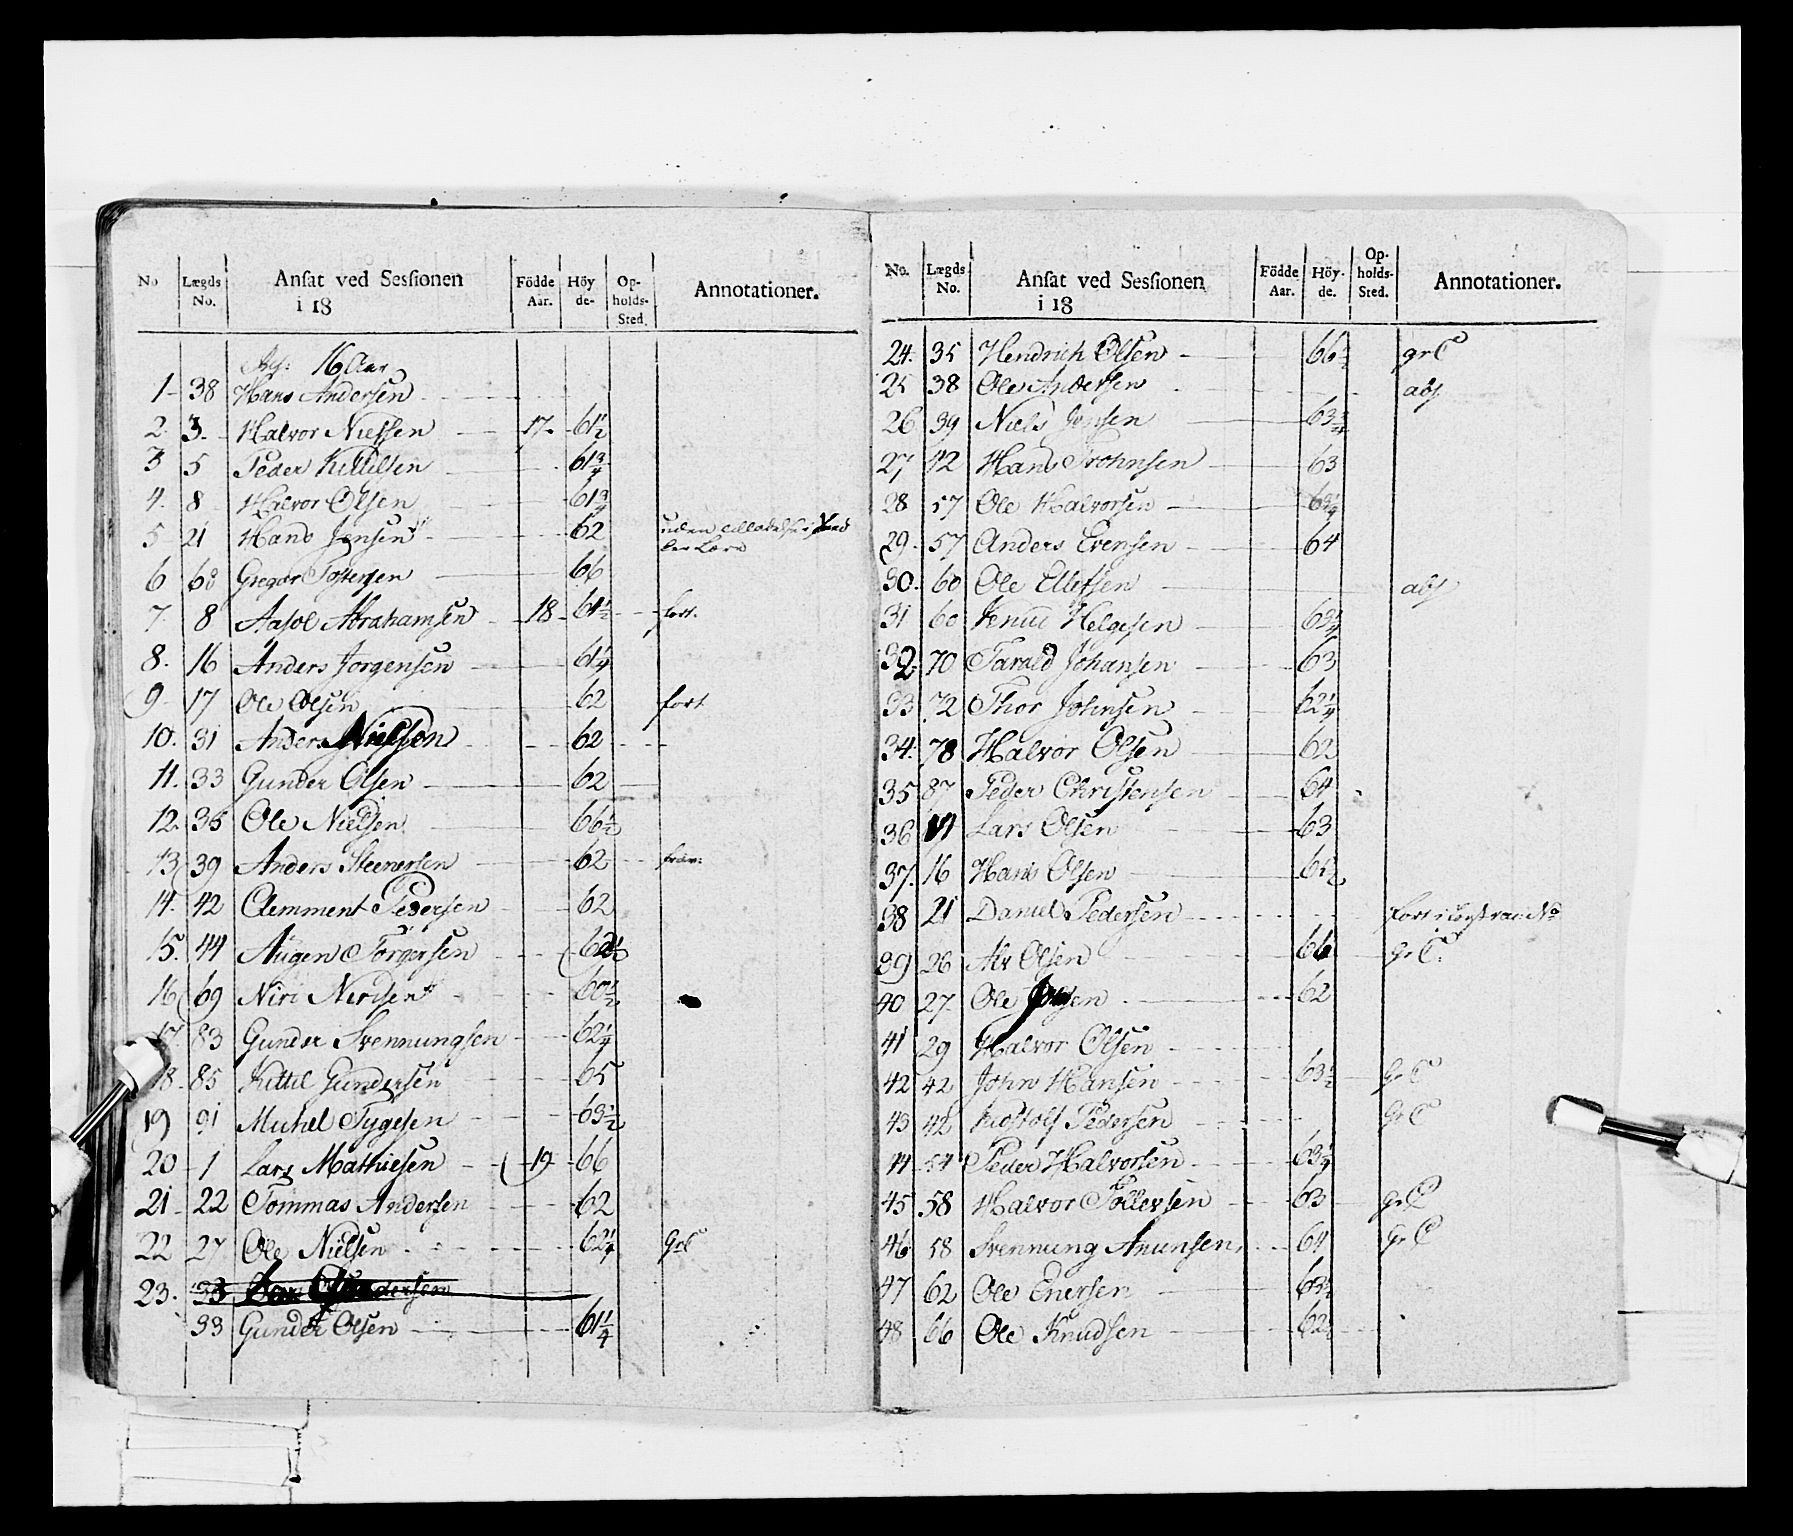 No Lægds No. Ansat ved Sessionen i 18 Födde Aar. Höy de- Op-holds-Sted. Annotationer.
16 Aar
1 38 Hans Andersen
2 3 Halvor Nielsen 17 61½
3 5 Peder Kittilsen 61¾
4 8 Halvor Olsen 61¾
5 21 Hans Jensen 62 uden
6 60 Gregor Tostersen 66
7 8 Aasol Abrahamsen 18 61½ fort.
8 16 Anders Jorgensen 61¼
9 17 Ole Olsen 62 fort
10 31 Anders Nielsen 62
11 33 Gunder Olsen 62
12 35 Ole Nielsen 66½
13 39 Anders Steenersen 62
14 42 Clemment Pedersen 62
15 44 Augen Torgersen
16 69 Niri Nerisen 60½
17 83 Gunder Svennungsen 62¼
18 85 Kittil Gundersen 65
19 91 Michel Tygesen 63½
20 1 Lars Mathiesen 19 66
21 22 Tommas Andersen 62
22 27 Ole Nielsen 62¼ GrC
23 33
33 Gunder Olsen 61¼
No. Lægds No. Ansat ved Sessionen i 18 Födde Aar. Höy-de. Op-holds-Sted. Annotationer.
24 35 Hendrich Olsen 66½ grC
25 38 Ole Andersen abs.
26 39 Niels 63¾
27 42 Hans Trohnsen 63
28 57 Ole Halvorsen
29 57 Anders Evensen 64
30 60 Ole Ellefsen abs
31 60 Knud Helgesen 63¾
32 70 Tarald Johansen 63
33 72 Thor Johnsen 62¼
34 78 Halvor Olsen 62
35 87 Peder Christensen 64
36 Lars Olsen 63
37 16 Hans Olsen
38 21 Daniel Pedersen fort
39 26 Alv Olsen 66 GrC.
40 27 Ole 62
41 29 Halvor Olsen
42 42 John Hansen 63½ GrC
43 42 Kiostolf Pedersen GrC
44 54 Peder Halvorsen 63¼
45 58 Halvor Tollevsen 63 GrC
46 58 Svennung Anunsen 64 GrC
47 62 Ole Enersen 63½
48 66 Ole Knudsen 62